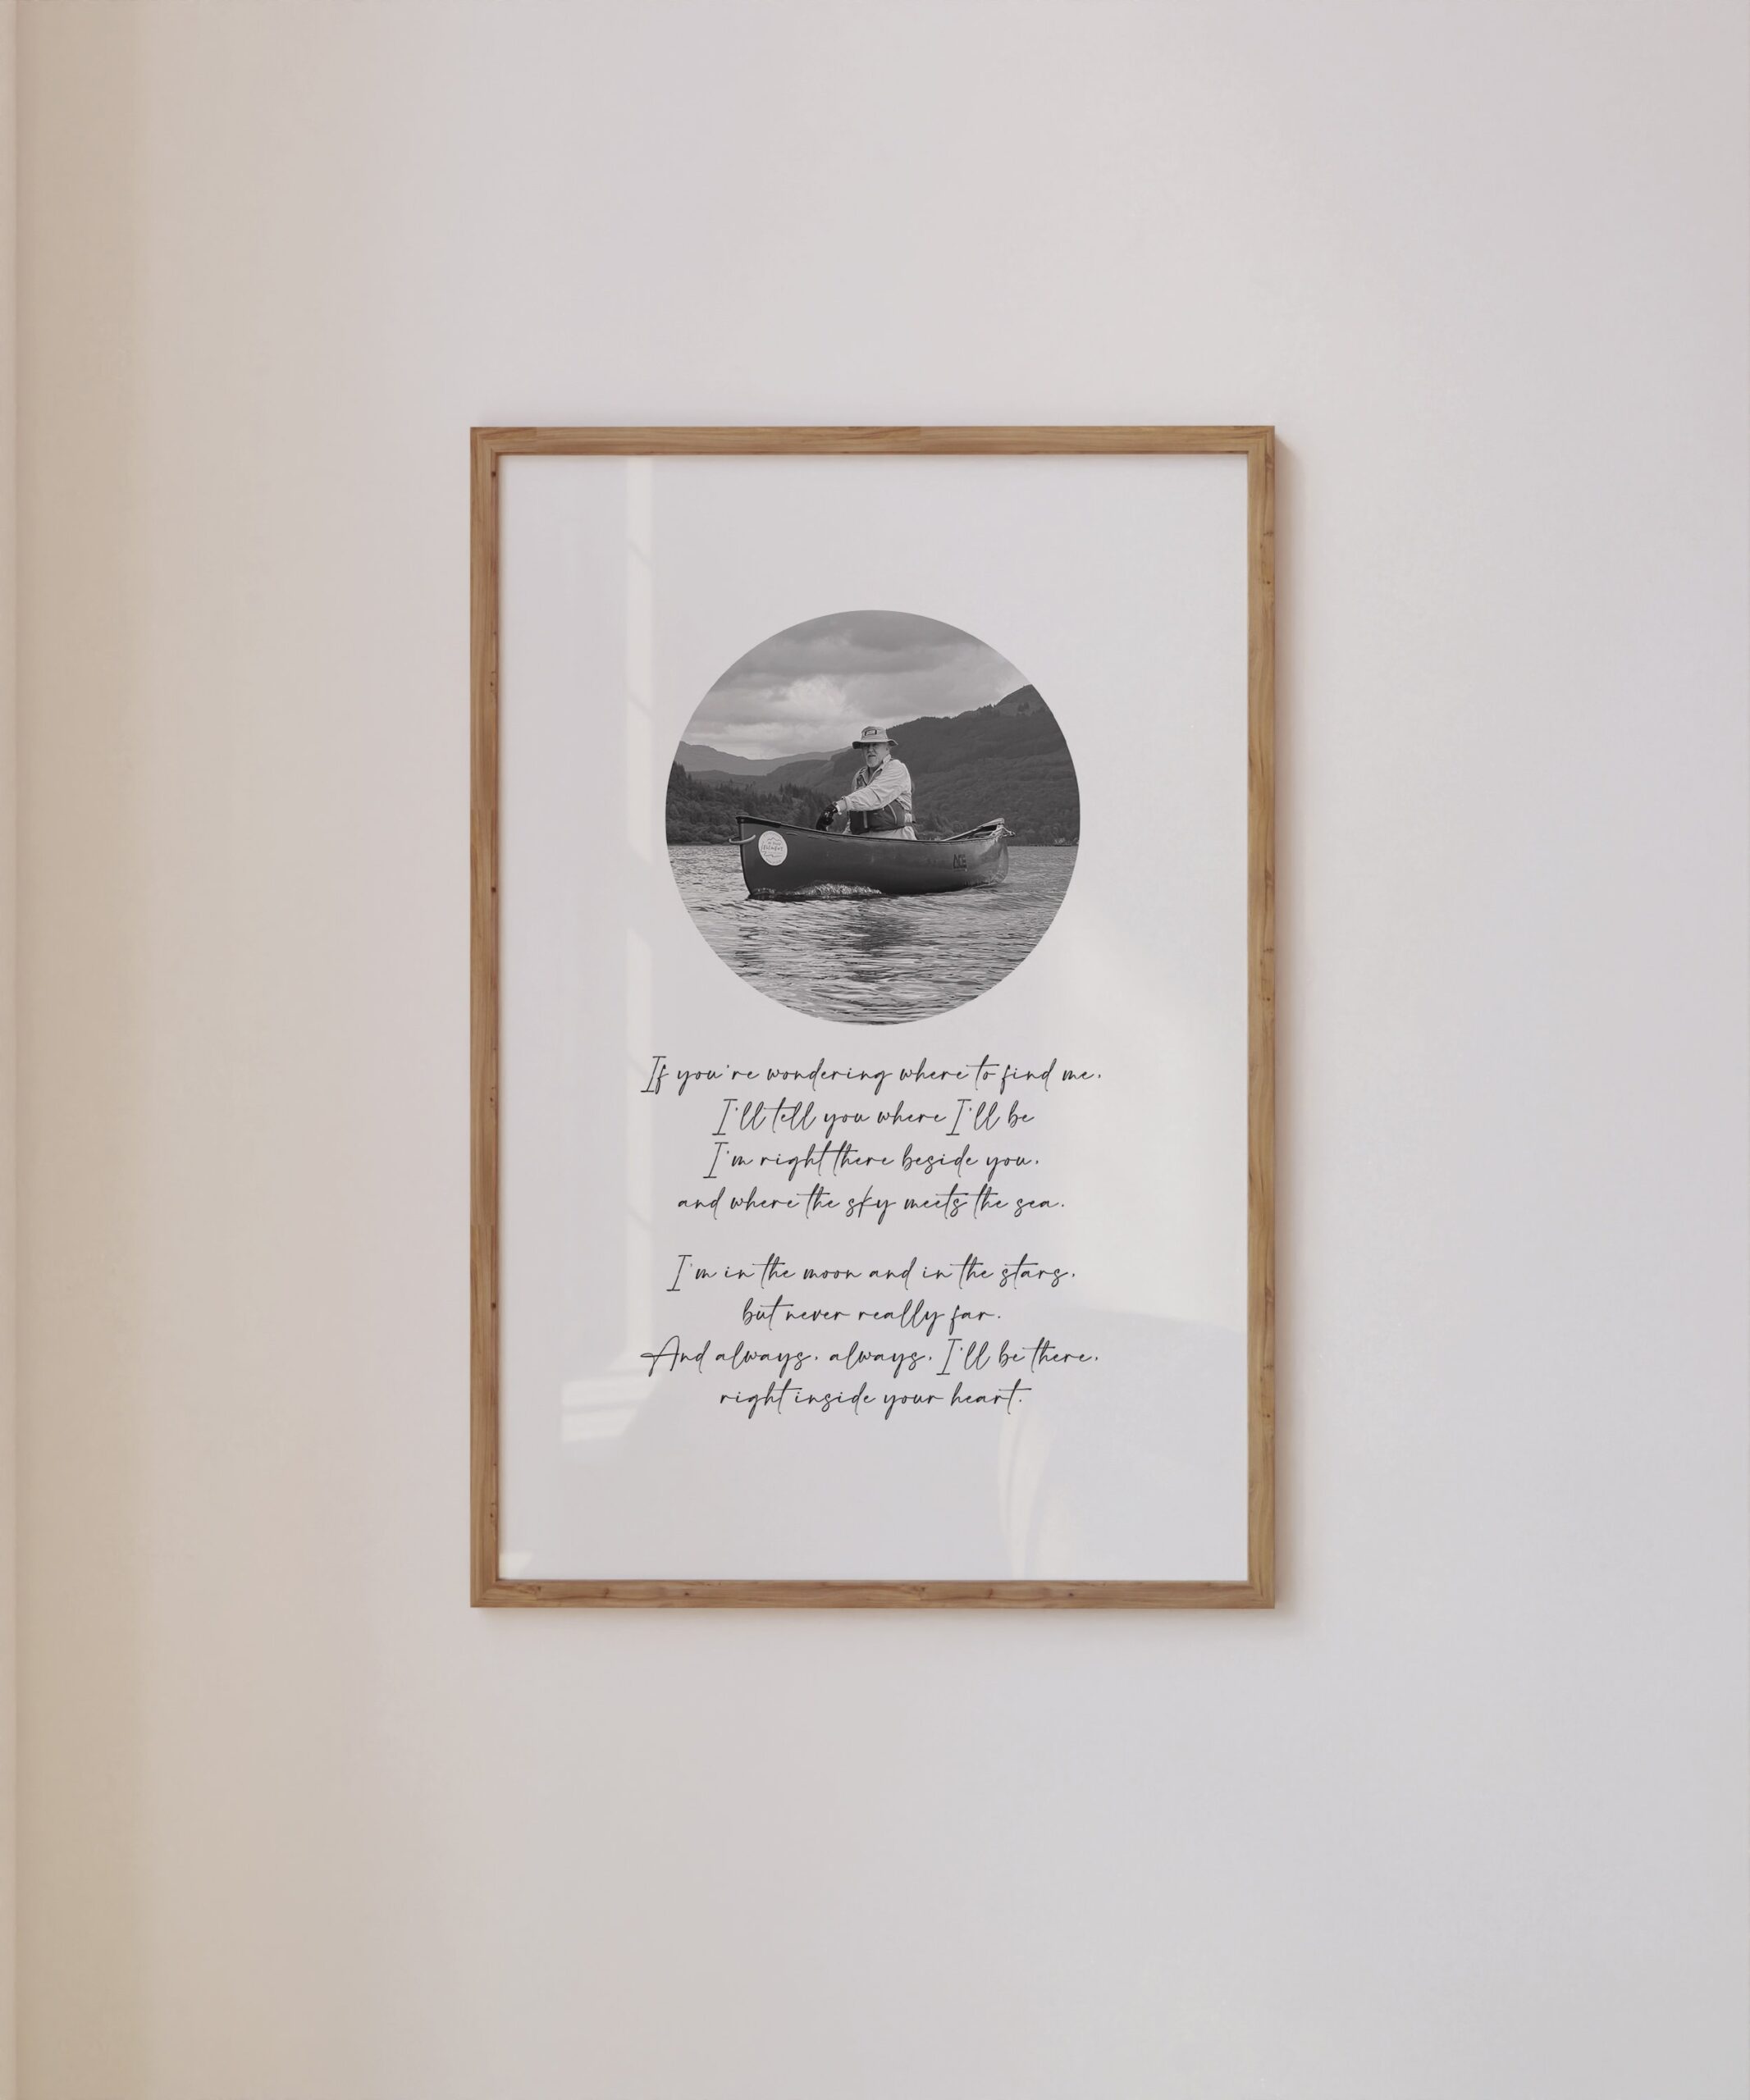 If you're wondering where to find me,
I'll tell you where I'll be
I'm right there beside you,
and where the sky meets the sea.
I'm in the moon and in the stars,
but never really far.
And always, always, I'll be there,
right inside your heart.